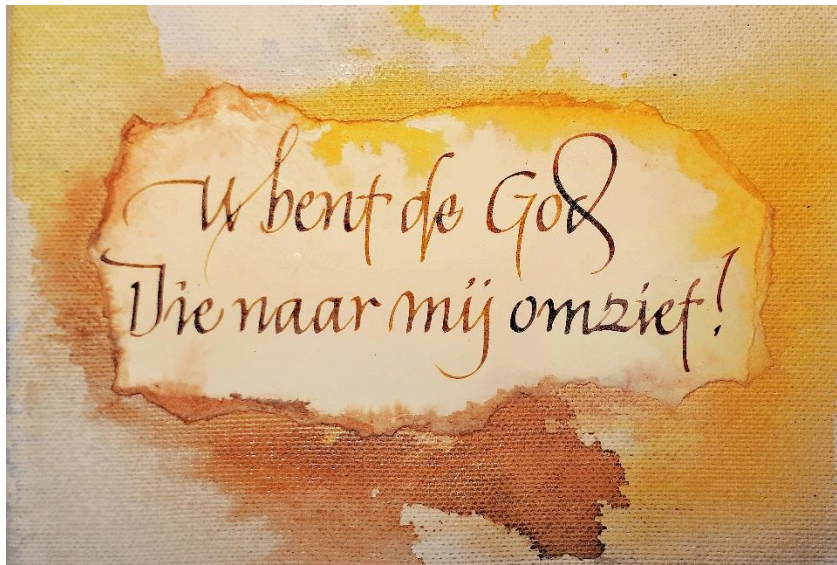 U bent de God
Die naar mij omziet!